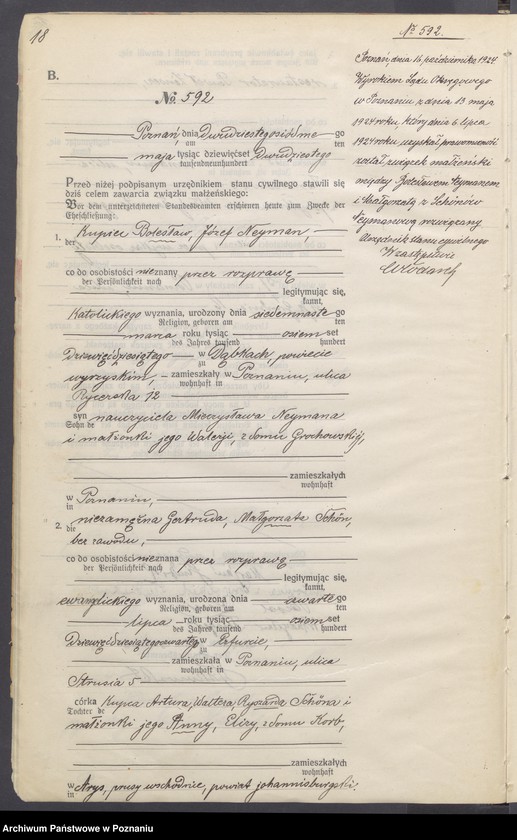 18
№ 592.
Poznań, dnia 16 października 1924
Wyrokiem Sądu Okręgowego
w Poznaniu z dnia 13 maja
1924 roku, który dnia 6 lipca
1924 roku uzyskał prawomocność
został związek małżeński
między Bolesławem Neymanem
i Małgorzatą z Schönów
Neymanową rozwiązany
Urzędnik stanu cywilnego
W zastępstwie
B.
№ 592
Poznań, dnia Dwudziestegoósme go
am ten
maja tysiąc dziewięćset Dwudziestego
tausendneunhundert
Przed niżej podpisanym urzędnikiem stanu cywilnego stawili się
dziś celem zawarcia związku małżeńskiego:
Vor dem unterzeichneten Standesbeamten erschienen heute zum Zwecke der
Eheschließung:
1. Kupiec Bolesław, Józef Neyman,
der
co do osobistości nieznany przez rozprawę
der Persönlichkeit nach
legitymując się,
kannt,
Katolickiego wyznania, urodzony dnia siedemnaste go
Religion, geboren am ten
marca roku tysiąc osiem set
des Jahres tausend hundert
Dziewięćdziesiątego w Dąbkach, powiecie
zu
wyrzyskim, zamieszkały w Poznaniu, ulica
wohnhaft in
Rycerska 12
syn nauczyciela Mieczysława Neymana
Sohn de
i małżonki jego Walerji, z domu Grochowskiej,
zamieszkałych
wohnhaft
w Poznaniu,
in
2. niezamężna Gertruda, Małgorzata Schön,
die
bez zawodu,
co do osobistości nieznana przez rozprawę
der Persönlichkeit nach
legitymując się,
kannt,
ewanglickiego wyznania, urodzona dnia czwarte go
Religion, geboren am ten
lipca roku tysiąc osiem set
des Jahres tausend hundert
Dziewięćdziesiątegoczwartego w Erfurcie,
zu
zamieszkała w Poznaniu, ulica
wohnhaft in
Strusia 5
córka Kupca Artura, Waltera, Ryszarda Schöna i
Tochter de
małżonki jego Anny, Elizy, z domu Korb,
zamieszkałych
wohnhaft
w Arys, prusy wschodnie, powiat johannisburgski.
in
Archiwum Państwowe w Poznaniu
www.szukajwarchiwach.gov.pl